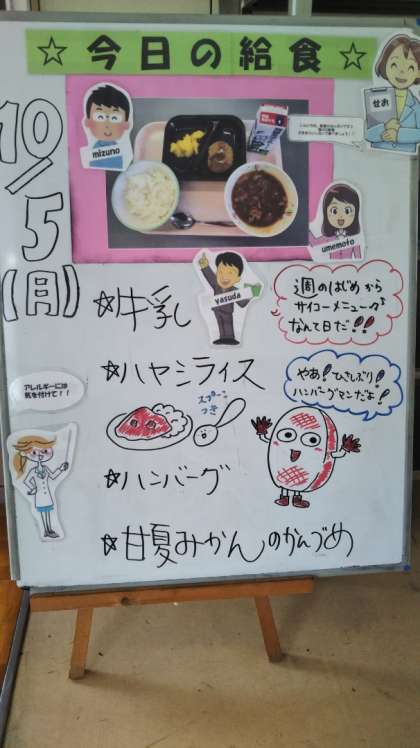 ☆今日の給食☆
せお
mizuno
umemoto
yasuda
10/5(月)
☆牛乳
週のはじめから
サイコーメニューで
なんて日だ!!
☆ハヤシライス
スプーン
つき
やあ!ひさしぶり!
ハンバーグマンだよ!
アレルギーには
気を付けて!!
☆ハンバーグ
☆甘夏みかんのかんづめ